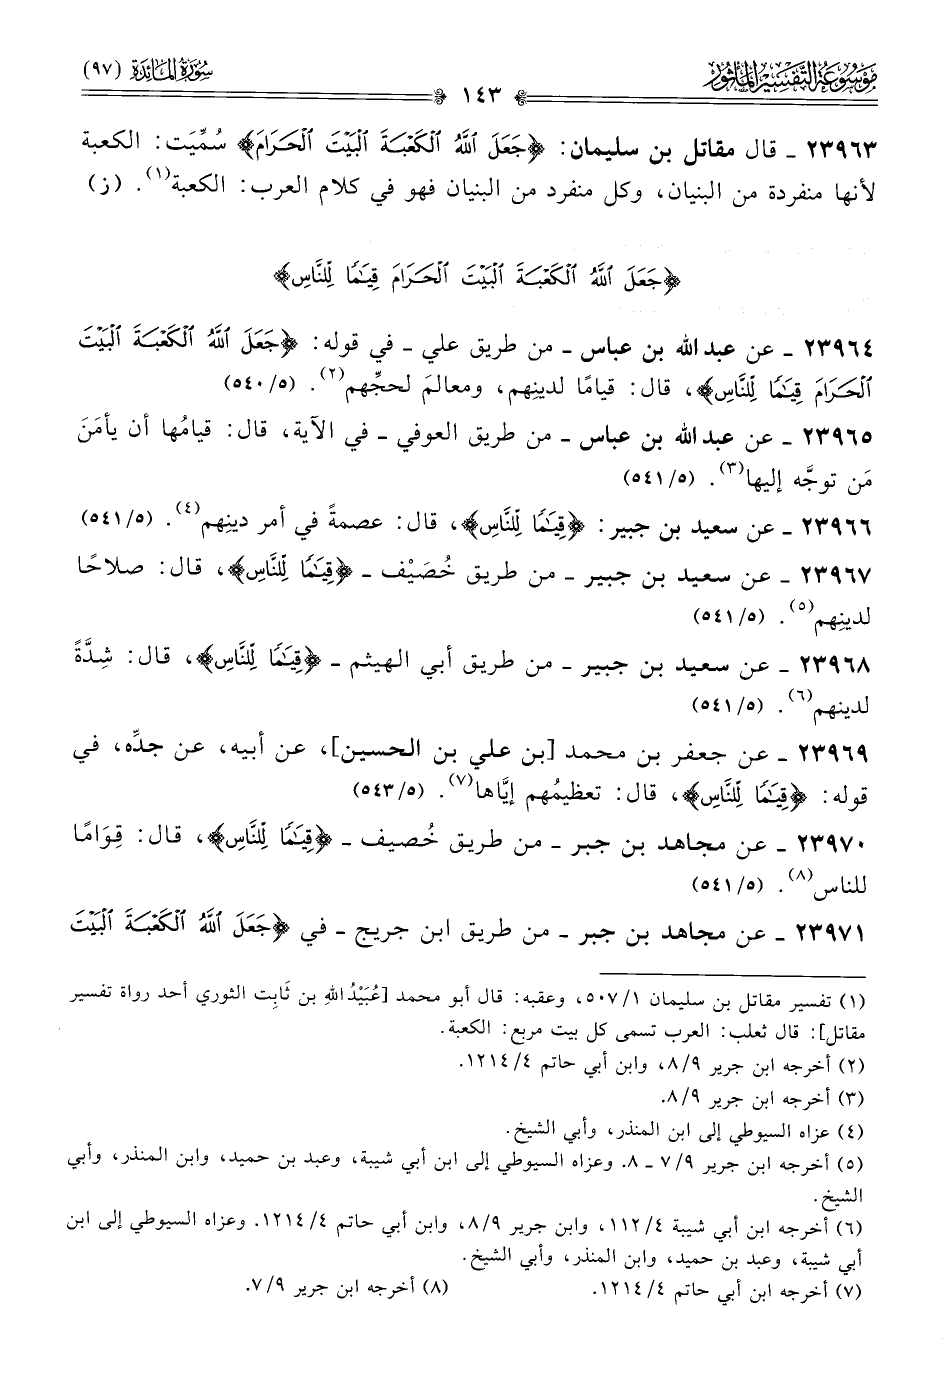 موسوعة التفسير المأثور
١٤٣
سورة المائدة (٩٧)
٢٣٩٦٣ ـ قال مقاتل بن سليمان: ﴿جَعَلَ ٱللَّهُ ٱلْكَعْبَةَ ٱلْبَيْتَ ٱلْحَرَامَ﴾ سُمِّيَت: الكعبة
لأنها منفردة من البنيان، وكل منفرد من البنيان فهو في كلام العرب: الكعبة(١). (ز)
﴿جَعَلَ ٱللَّهُ ٱلْكَعْبَةَ ٱلْبَيْتَ ٱلْحَرَامَ قِيَـٰمًا لِّلنَّاسِ﴾
٢٣٩٦٤ ـ عن عبد الله بن عباس ـ من طريق علي ـ في قوله: ﴿جَعَلَ ٱللَّهُ ٱلْكَعْبَةَ ٱلْبَيْتَ
ٱلْحَرَامَ قِيَـٰمًا لِّلنَّاسِ﴾، قال: قيامًا لدينِهم، ومعالمَ لحجِّهم(٢). (٥٤٠/٥)
٢٣٩٦٥ ـ عن عبد الله بن عباس ـ من طريق العوفي ـ في الآية، قال: قيامُها أن يأمَنَ
مَن توجَّه إليها(٣). (٥٤١/٥)
٢٣٩٦٦ ـ عن سعيد بن جبير: ﴿قِيَـٰمًا لِّلنَّاسِ﴾، قال: عصمةً في أمر دينهم(٤). (٥٤١/٥)
٢٣٩٦٧ ـ عن سعيد بن جبير ـ من طريق خُصَيْف ـ ﴿قِيَـٰمًا لِّلنَّاسِ﴾، قال: صلاحًا
لدينِهم(٥). (٥٤١/٥)
٢٣٩٦٨ ـ عن سعيد بن جبير ـ من طريق أبي الهيثم ـ ﴿قِيَـٰمًا لِّلنَّاسِ﴾، قال: شِدَّةً
لدينهم(٦). (٥٤١/٥)
٢٣٩٦٩ ـ عن جعفر بن محمد [بن علي بن الحسين]، عن أبيه، عن جدِّه، في
قوله: ﴿قِيَـٰمًا لِّلنَّاسِ﴾، قال: تعظيمُهم إيَّاها(٧). (٥٤٣/٥)
٢٣٩٧٠ ـ عن مجاهد بن جبر ـ من طريق خُصيف ـ ﴿قِيَـٰمًا لِّلنَّاسِ﴾، قال: قِوَامًا
للناس(٨). (٥٤١/٥)
٢٣٩٧١ ـ عن مجاهد بن جبر ـ من طريق ابن جريج ـ في ﴿جَعَلَ ٱللَّهُ ٱلْكَعْبَةَ ٱلْبَيْتَ
(١) تفسير مقاتل بن سليمان ٥٠٧/١، وعقبه: قال أبو محمد [عُبَيْدُ الله بن ثَابِت الثوري أحد رواة تفسير
مقاتل]: قال ثعلب: العرب تسمى كل بيت مربع: الكعبة.
(٢) أخرجه ابن جرير ٨/٩، وابن أبي حاتم ١٢١٤/٤.
(٣) أخرجه ابن جرير ٨/٩.
(٤) عزاه السيوطي إلى ابن المنذر، وأبي الشيخ.
(٥) أخرجه ابن جرير ٧/٩ ـ ٨. وعزاه السيوطي إلى ابن أبي شيبة، وعبد بن حميد، وابن المنذر، وأبي
الشيخ.
(٦) أخرجه ابن أبي شيبة ١١٢/٤، وابن جرير ٨/٩، وابن أبي حاتم ١٢١٤/٤. وعزاه السيوطي إلى ابن
أبي شيبة، وعبد بن حميد، وابن المنذر، وأبي الشيخ.
(٧) أخرجه ابن أبي حاتم ١٢١٤/٤. (٨) أخرجه ابن جرير ٧/٩.